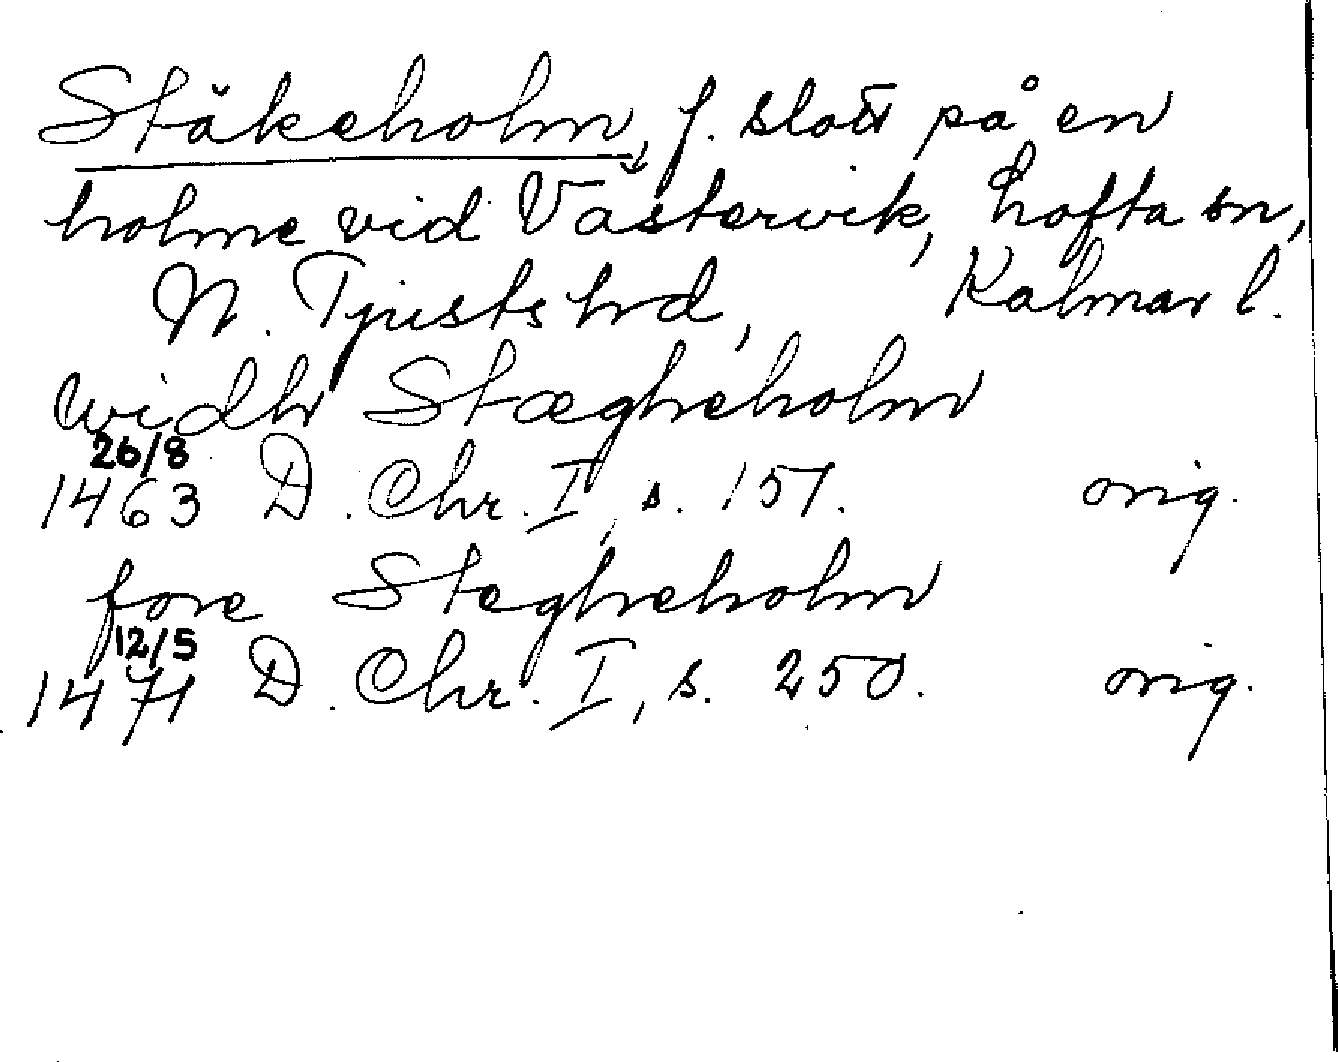 Stäkeholm, f. slott på en
holme vid Västervik, Lofta sn,
N. Tjusts hrd, Kalmar l.
widh Stægheholm
26/8
1463 D. Chr. I, s. 157. orig.
fore Stegheholm
12/5
1471 D. Chr. I, s. 250. orig.